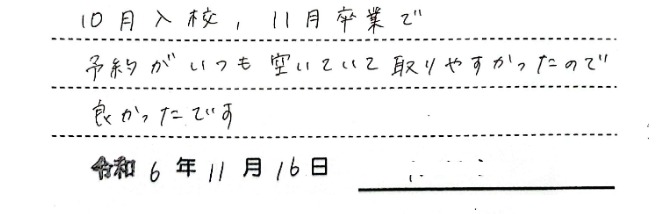 10月入校, 11月卒業で
予約がいつも空いていて取りやすかったので
良かったです
令和6年11月16日